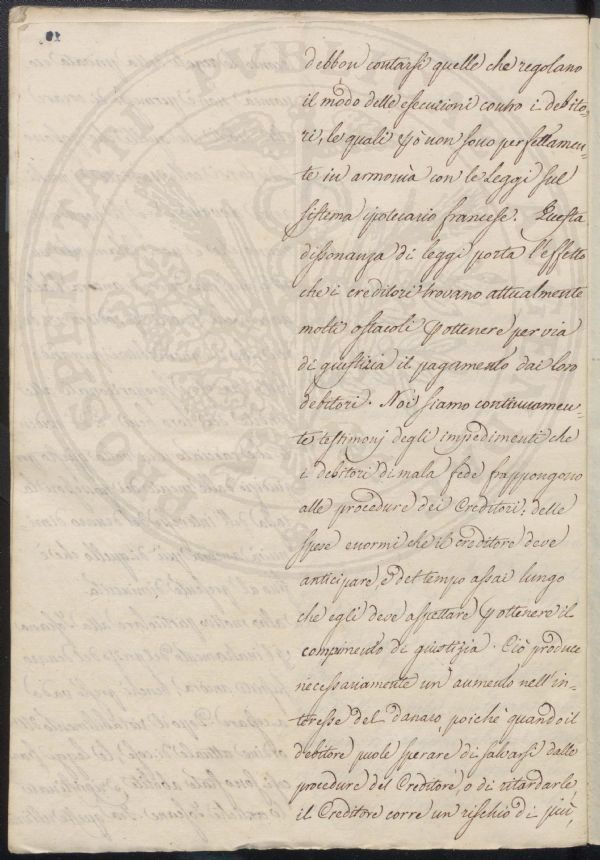 debbon contarsi quelle che regolano
il modo delle esecuzioni contro i debito-
ri, le quali pò non sono perfettamen-
te in armonìa con le Leggi sul
sistema ipotecario francese. Questa
dissonanza di leggi porta l'effetto
che i creditori trovano attualmente
molti ostacoli p ottenere per via
di giustizia il pagamento dai loro
debitori. Noi siamo continuamen-
te testimonj degli impedimenti che
i debitori di mala fede frappongono
alle procedure dei Creditori; delle
spese enormi che il creditore deve
anticipare, e del tempo assai lungo
che egli deve aspettare p ottenere il
compimento di giustizia. Ciò produce
necessariamente un aumento nell'in-
teresse del danaro, poichè quando il
debitore puole sperare di salvarsi dalle
procedure del Creditore, o di ritardarle,
il Creditore corre un rischio di più,